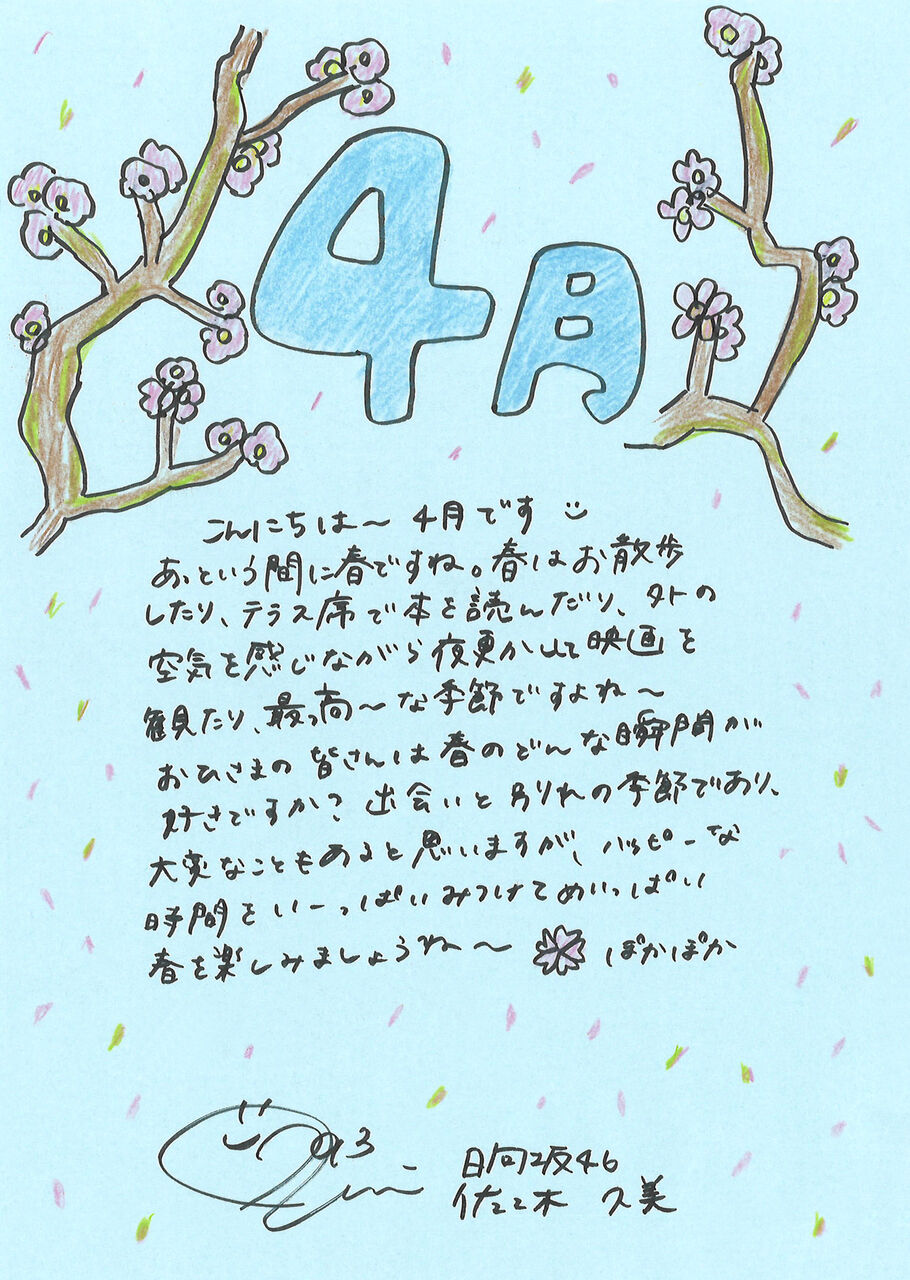 4月
こんにちは〜 4月です
あっという間に春ですね。春はお散歩
したり、テラス席で本を読んだり、外の
空気を感じながら夜更かしして映画を
観たり、最っ高〜な季節ですよね〜
おひさまの皆さんは春のどんな瞬間が
好きですか? 出会いと別れの季節であり、
大変なこともあると思いますが、ハッピーな
時間をいーっぱいみつけてめいっぱい
春を楽しみましょうね〜 ぽかぽか
日向坂46
佐々木 久美